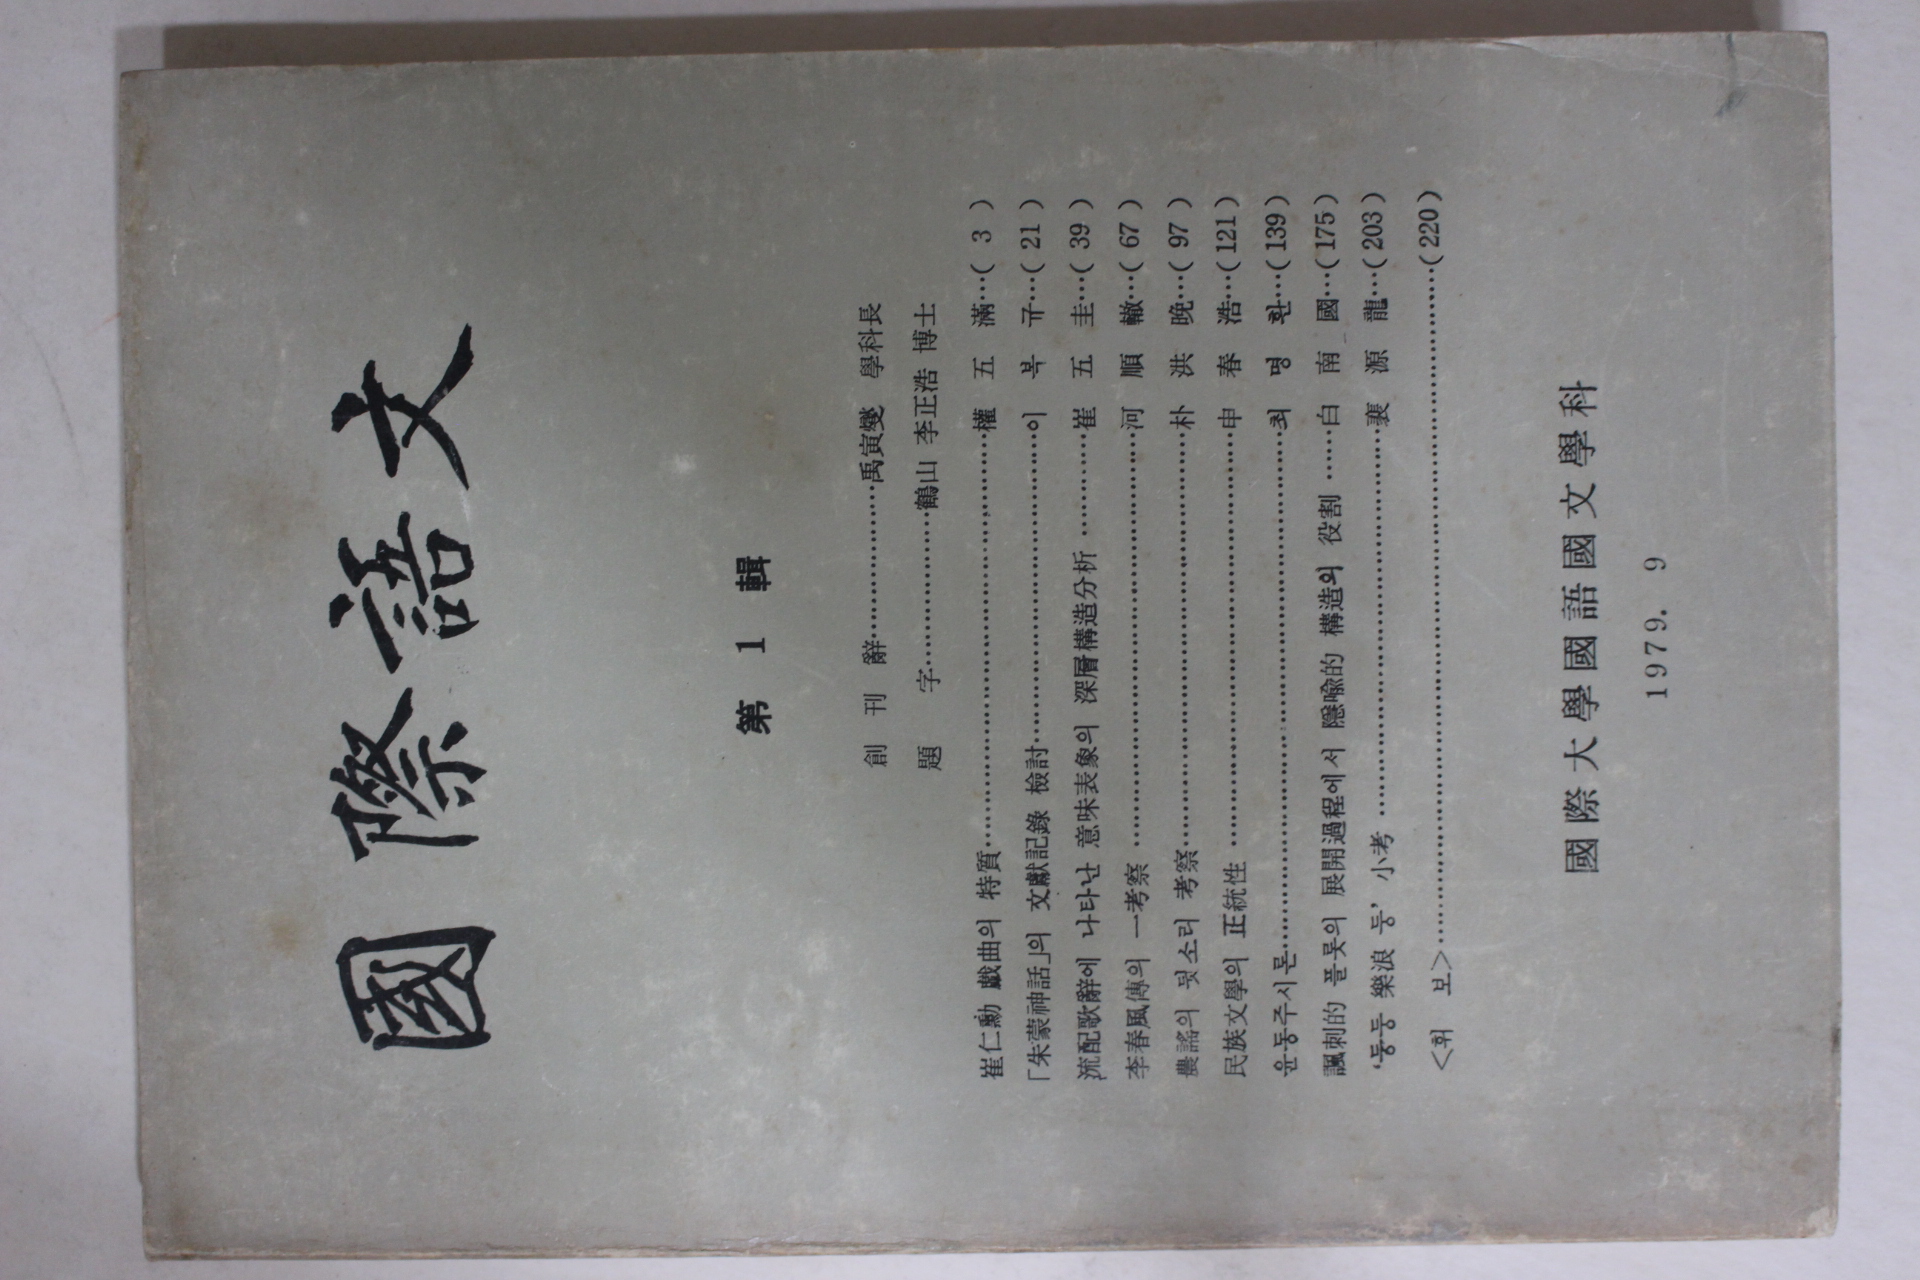 國際語文
第 1 輯
創刊辭……………禹寅燮 學科長
題字……………鶴山 李正浩 博士
崔仁勳 戱曲의 特質……………權五滿…( 3 )
「朱蒙神話」의 文獻記錄 檢討……………이복규…( 21 )
流配歌辭에 나타난 意味表象의 深層構造分析……………崔五圭…( 39 )
李春風傳의 一考察……………河順轍…( 67 )
農謠의 뒷소리 考察……………朴洪晩…( 97 )
民族文學의 正統性……………申春浩…(121)
윤동주시론……………최명환…(139)
諷刺的 플롯의 展開過程에서 隱喩的 構造의 役割……白南國…(175)
‘둥둥 樂浪 둥’ 小考……………裵源龍…(203)
<휘보>……………(220)
國際大學國語國文學科
1979. 9